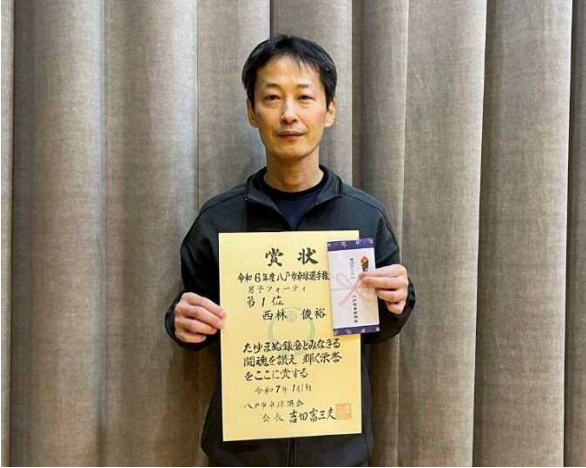 賞状
令和6年度八戸市卓球選手権
男子フォーティ
第1位
西林 俊裕
たゆまぬ錬磨とみなぎる
闘魂を讃え 輝く栄誉
をここに賞する
令和7年1月
八戸市卓球協会
会長 吉田富三夫